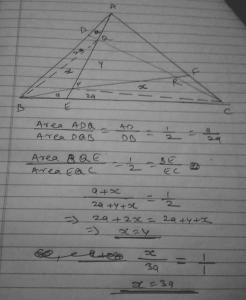 A
D a
Q
2a
x y F
R
a x
B E 2a C
Area ADQ / Area DQB = AD / DB = 1/2 = a/2a
Area BQE / Area EQC = 1/2 = BE / EC
a+x / 2a+y+x = 1/2
⇒ 2a+2x = 2a+y+x
⇒ x=y
x / 3a = 1/1
x = 3a